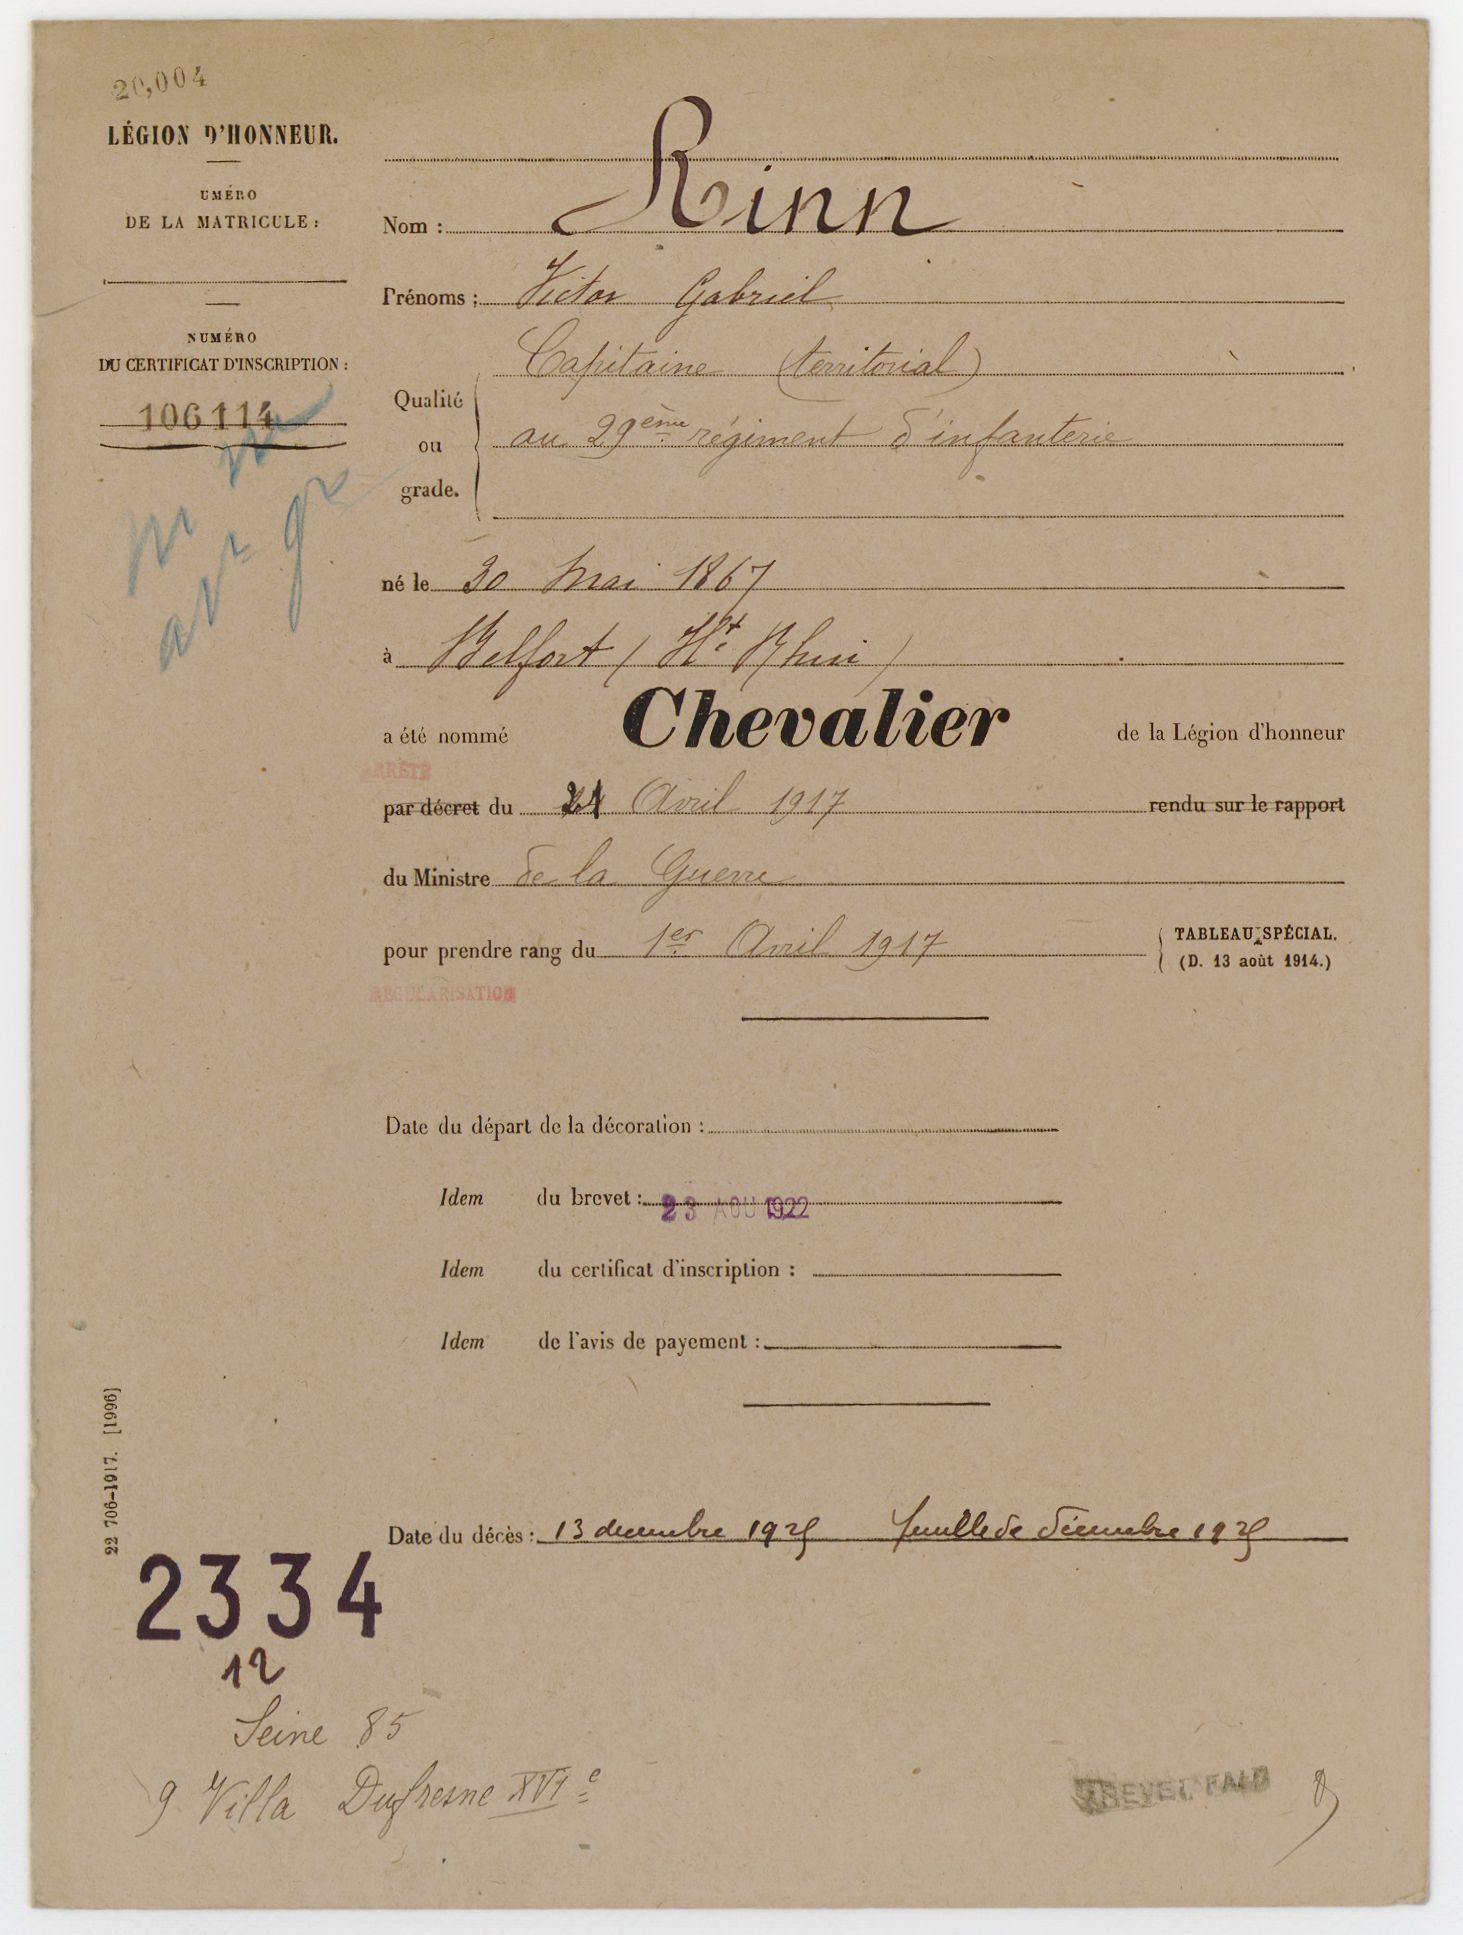 20,004
LÉGION D'HONNEUR.
UMÉRO
DE LA MATRICULE :
NUMÉRO
DU CERTIFICAT D'INSCRIPTION :
106114
Nom : Rinn
Prénoms : Victor Gabriel
Qualité ou grade. Capitaine (territorial)
au 29ème régiment d'infanterie
né le 30 Mai 1867
à Belfort (Ht Rhin)
a été nommé Chevalier de la Légion d'honneur
ARRÊTÉ
par décret du 21 Avril 1917 rendu sur le rapport
du Ministre de la Guerre
pour prendre rang du 1er Avril 1917
TABLEAU SPÉCIAL.
(D. 13 août 1914.)
RÉGULARISATION
Date du départ de la décoration :
Idem du brevet : 23 AOU 1922
Idem du certificat d'inscription :
Idem de l'avis de payement :
22 706-1917. [1996]
Date du décès : 13 decembre 1925 feuille de décembre 1925
2334
12
Seine 85
9 Villa Dufresne XVIe
BREVET